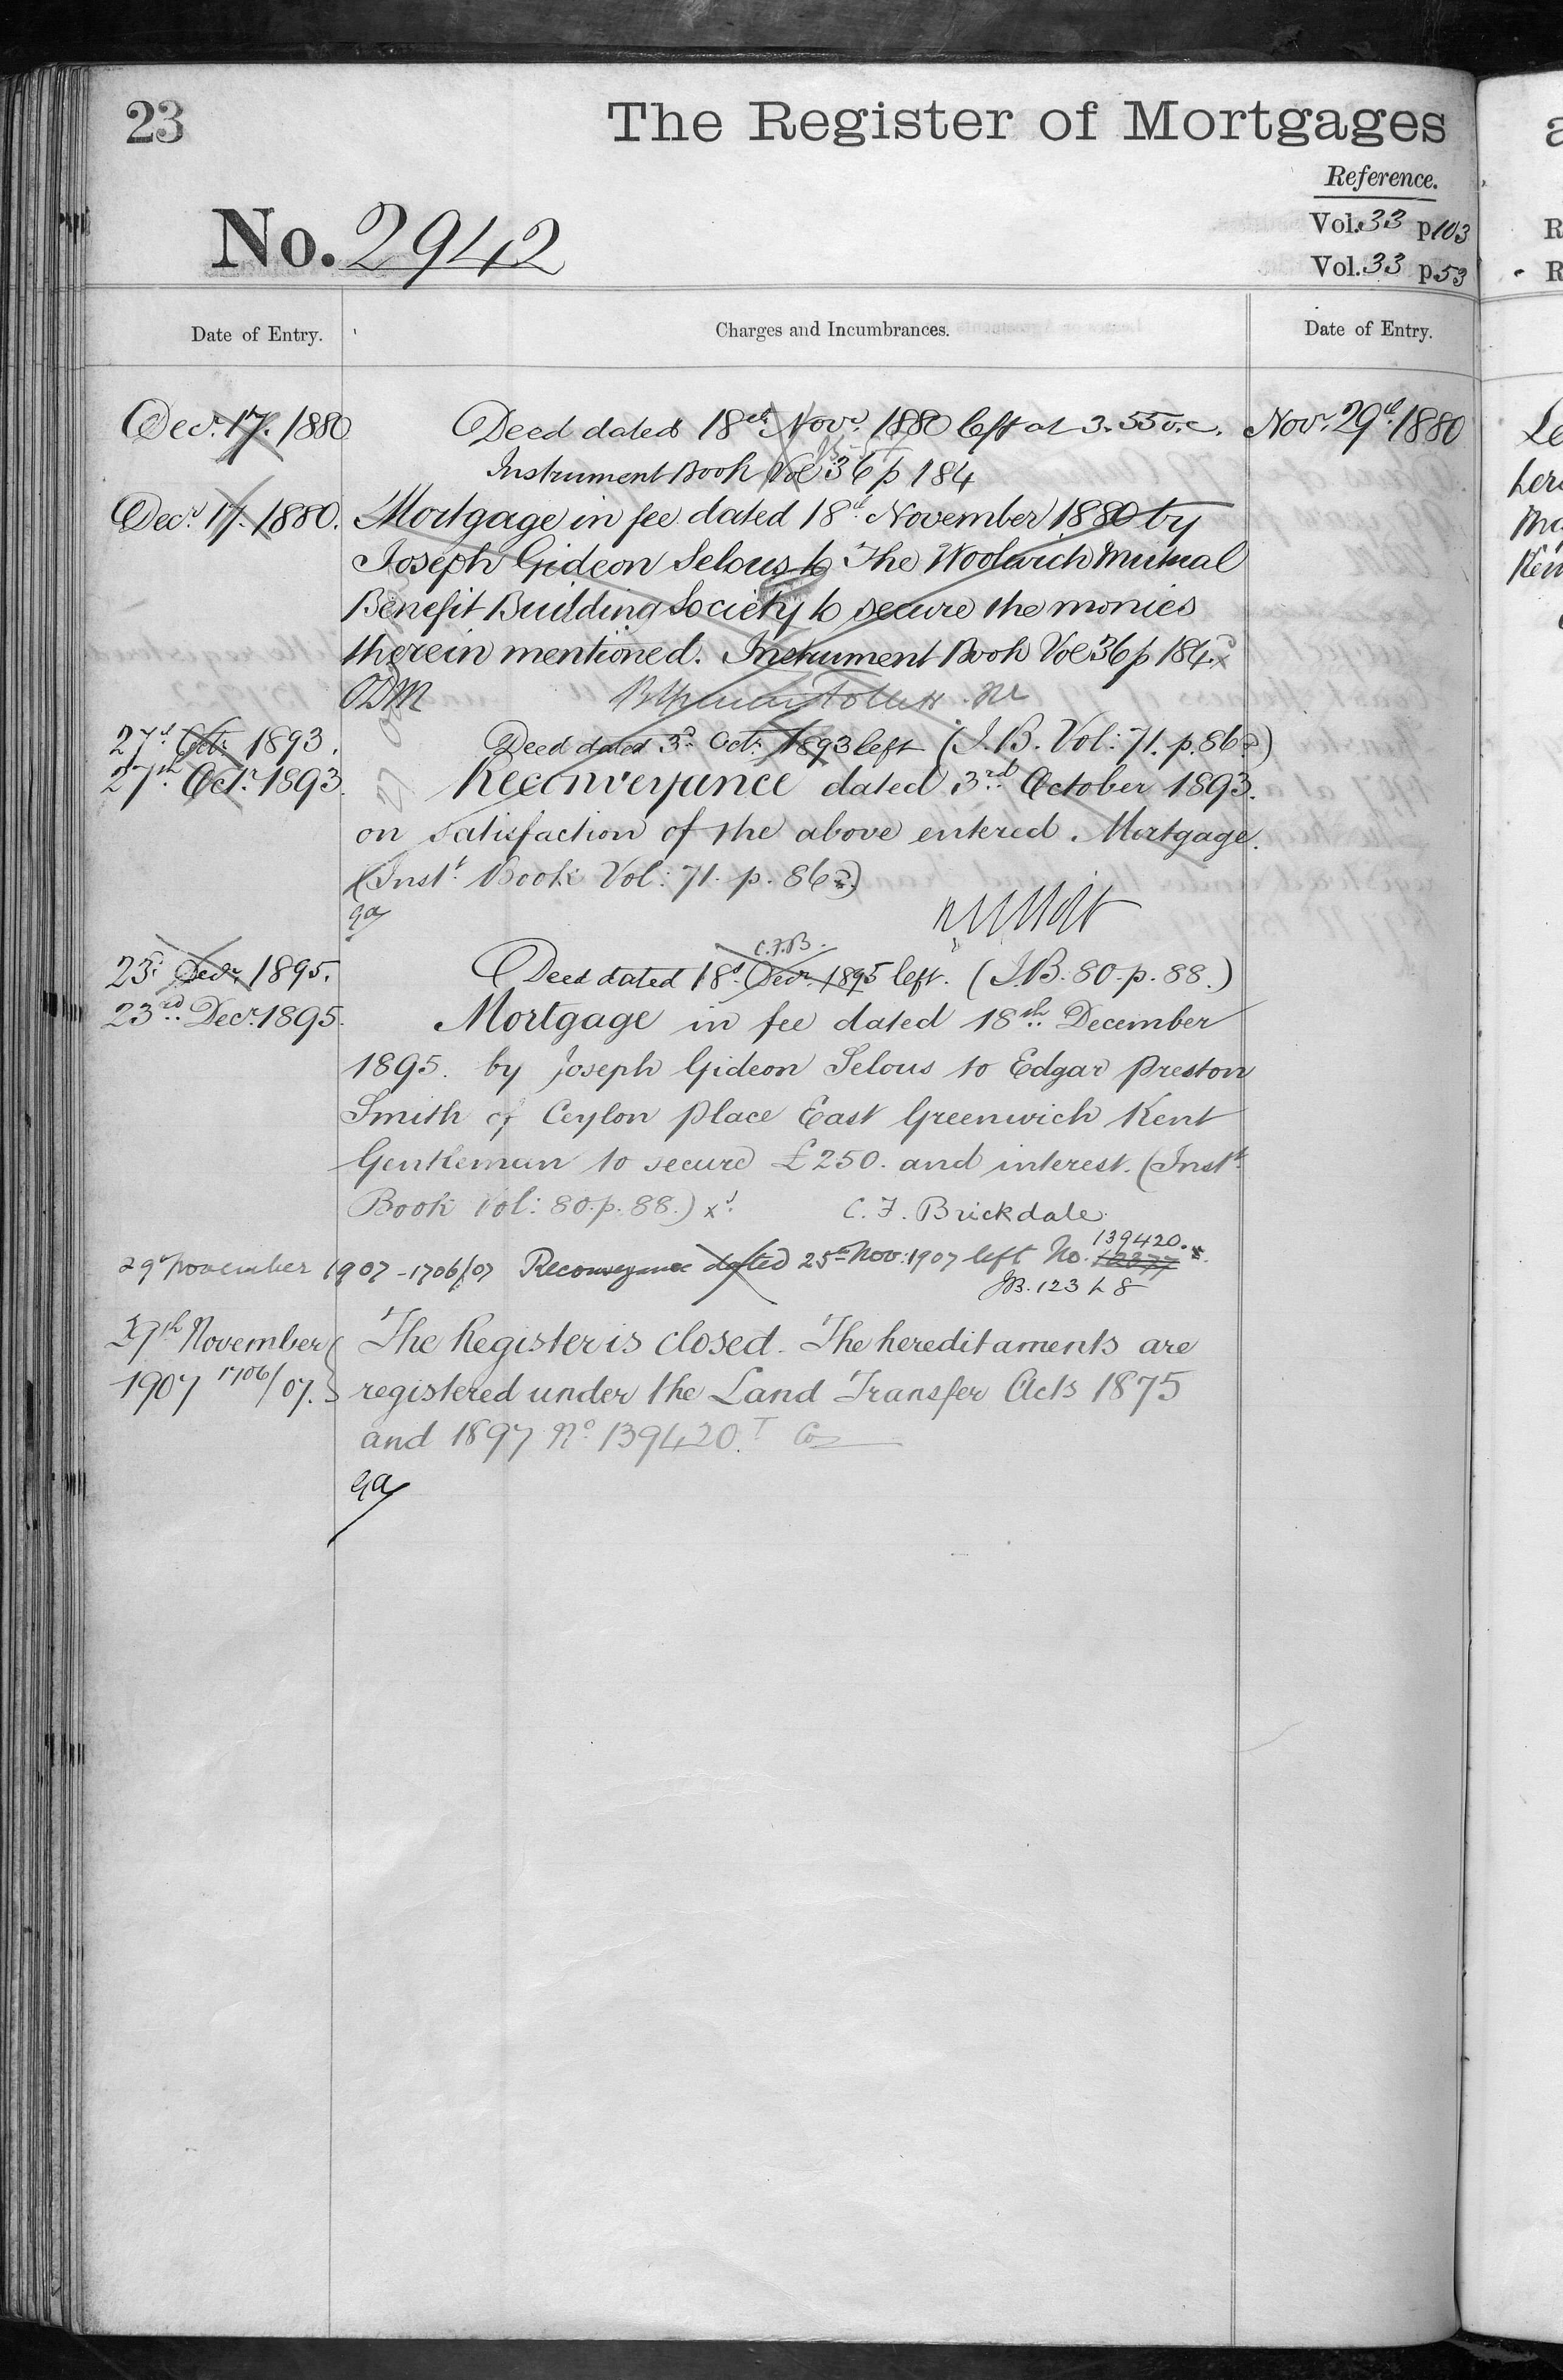 23
The Register of Mortgages
Reference.
No. 2942
Vol. 33 p 103
Vol. 33 p 53
Date of Entry.
Charges and Incumbrances.
Date of Entry.
Decr. 17. 1880
Deed dated 18th Novr. 1880 left at 3.55
Novr. 29th 1880
Instrument Book Vol 36 p 184
Decr. 17. 1880.
Mortgage in fee dated 18th November 1880 by
Joseph Gideon Selous to The Woolwich Mutual
Benefit Building Society to secure the monies
therein mentioned. Instrument Book Vol 36 p 184.
27th Octr. 1893.
Deed dated 3rd Octr. 1893 left (I.B. Vol: 71. p. 86)
27th Octr. 1893.
Reconveyance dated 3rd October 1893.
on satisfaction of the above entered Mortgage.
(Instt. Book Vol: 71. p. 86)
ga
C.F.B.
23rd Decr. 1895.
Deed dated 18th Decr. 1895 left. (I.B. 80. p. 88.)
23rd Decr. 1895.
Mortgage in fee dated 18th December
1895. by Joseph Gideon Selous to Edgar Preston
Smith of Ceylon Place East Greenwich Kent
Gentleman to secure £250. and interest. (Instt.
Book Vol: 80. p. 88.) C. F. Brickdale.
139420.
29th November 1907 - 1706/07 Reconveyance dated 25th Nov: 1907 left No.
I.B. 123 L 8
November
The Register is closed. The hereditaments are
1907 1706/07.
registered under the Land Transfer Acts 1875
and 1897 No. 139420.
ga